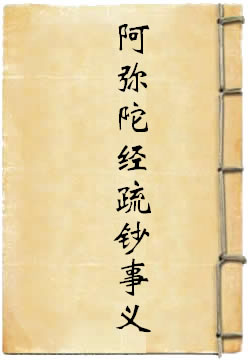 阿弥陀经疏钞事义